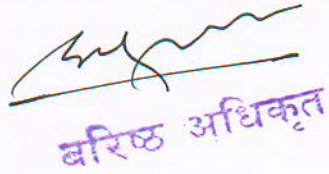 बरिष्ठ अधिकृत